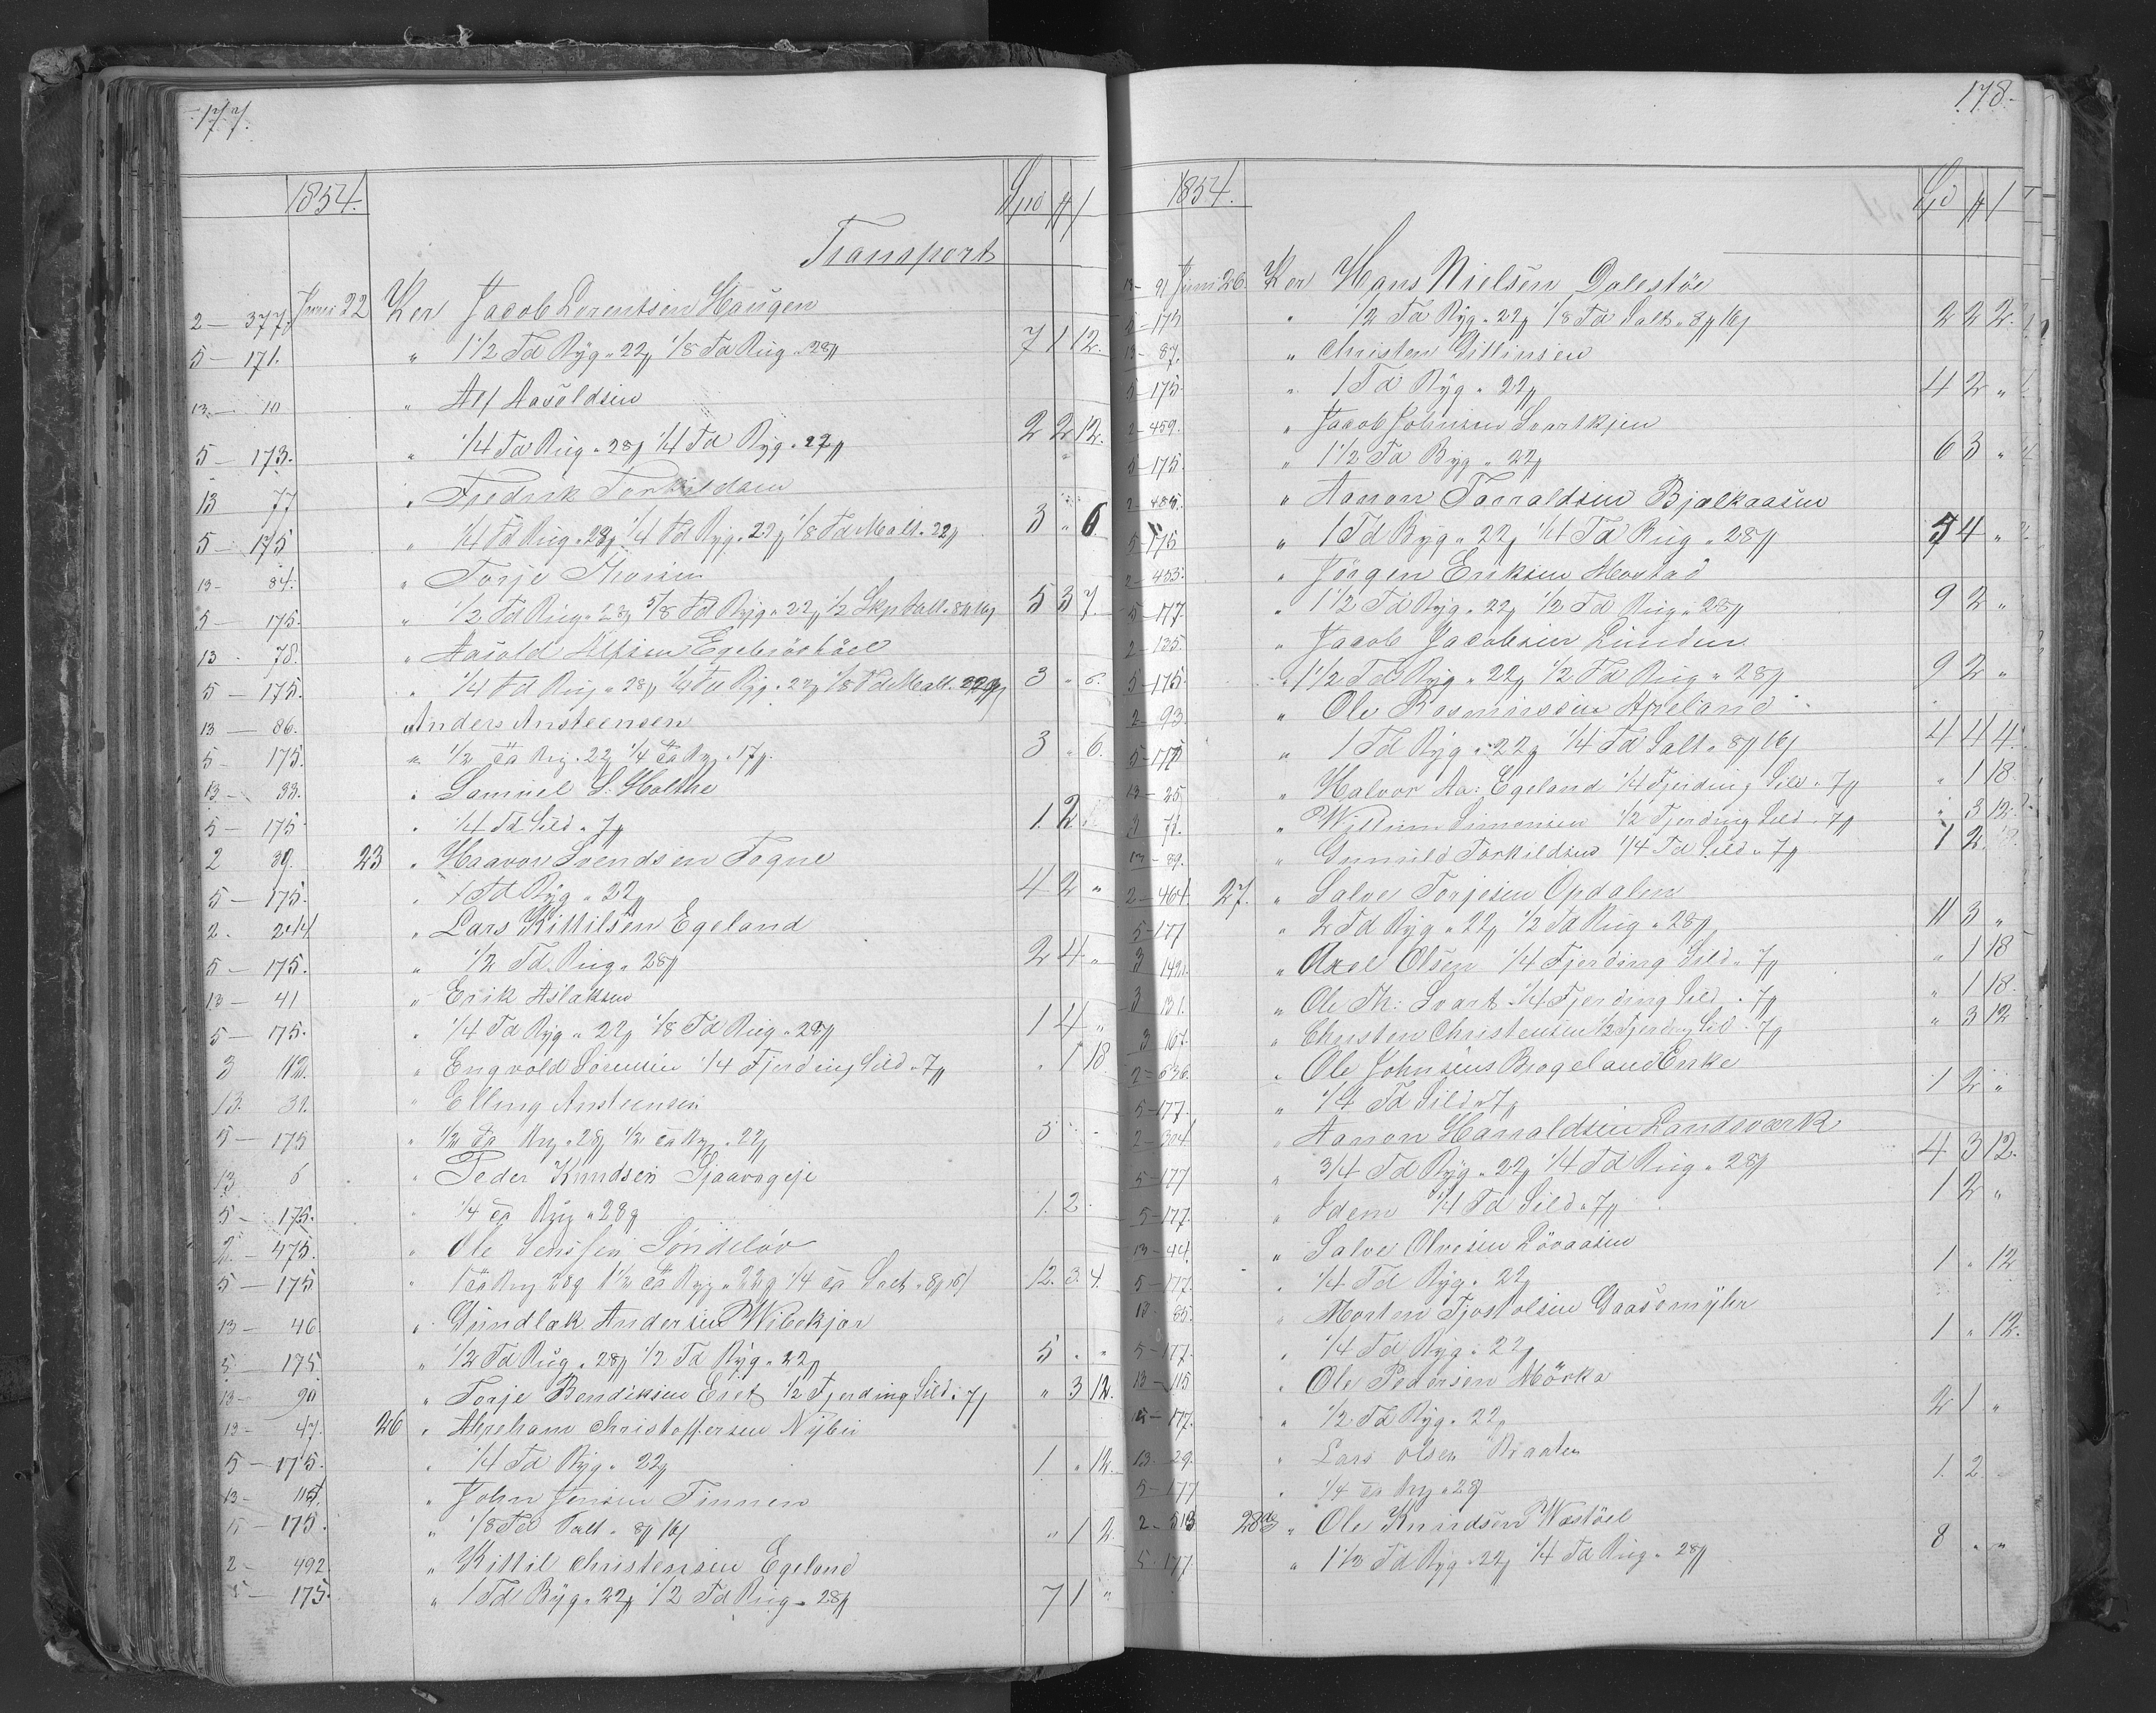 177.
1854.
Spd # /
Transport
2 — 377. Juni 22 Ker Jacob Lorentsen Haugen
5 — 171. " 1 1/2 Td Byg " 22# 1/8 Td Rug " 28# 7 1 12.
13 — 10 " Alf Aasoldsen
5 — 173. " 1/4 Td Rug " 28# 1/4 Td Byg " 22# 2 2 12.
13 77 " Fredrik Torkildsen
5 — 175 " 1/4 Td Rug " 28# 1/4 Td Byg " 22# 1/8 Td Malt " 22# 3 " 6.
13 — 84. " Torje
5 — 175. " 1/2 Td Rug " 28# 5/8 Td Byg " 22# 1/2 Skp Salt " 8# 16/ 5 3 7.
13 - 78. " Aasold Alfsen
5 — 175. " 1/4 Td Rug " 28# 1/4 Td Byg " 22# 1/8 Td Malt " 22# 3 " 6.
13 — 86. " Anders Ansteensen
5 - 175. " 1/2 Td Byg " 22# 1/4 Td " 17# 3 " 6.
13 — 33. " Samuel S: Holthe
5 — 175 " 1/4 Td Sild " 7# 1. 2
2 39. 23 " Haavor Svendsen Fogne
5 — 175. " 1 Td Byg " 22# 4 2 "
2. 244 " Lars Kittilsen Egeland
5 — 175. " 1/2 Td Rug " 28# 2 4 "
13 — 41 " Erik Aslaksen
5 — 175. " 1/4 Td Byg " 22# 1/8 Td Rug " 28# 1 4 "
3 112. " Engvold Sörensen 1/4 Fjerding Sild " 7# " 1 18
13. 31. " Elling Ansteensen
5 — 175 " 1/2 Td Rug " 28# 1/2 Td Byg " 22# 5 " -
13 6 " Peder Knudsen
5 — 175. " 1/4 Td Rug " 28# 1. 2.
2. — 475. " Ole Jenssen Söndeløv
5 — 175. " 1 Td Rug 28# 1 1/2 Td Byg " 22# 1/4 Td Salt " 8# 16/ 12. 3. 4.
13 — 46 " Gundlak Andersen Wibekjær
5 — 175. " 1/2 Td Rug " 28# 1/2 Td Byg " 22# 5 " "
13 — 90 " Torje Bendixsen Eret 1/2 Fjerding Sild " 7# " 3 12.
13 — 47. 26 " Abreham Christoffersen Nybu
5 — 175. " 1/4 Td Byg " 22# 1. " 12.
13 — " John Jensen Tinnen
5 — 175. " 1/8 Td Salt " 8# 16/ " 1 2.
2 - 492 " Kittil Christensen Egeland
5 — 175. " 1 Td Byg " 22# 1/2 Td Rug " 28# 7 1 "
178.
1854.
Spd # /
13 — 91 Juni 26. Ker Hans Nielsen Dalestöe
5 — 175 " 1/2 Td Byg " 22# 1/8 Td Salt " 8# 16/ 2 2 2.
13 — 87. " Christen Gittinsen
5 — 175. " 1 Td Byg " 22# 4 2 "
2 — 459. " Jacob Johnsen Svartkjen
5 — 175. " 1 1/2 Td Byg " 22# 6 3 "
2 — 485. " Aanon Tarraldsen Bjælkaasen
5 — 175 " 1 Td Byg " 22# 1/4 Td Rug " 28# 5 4 "
2 — 453. " Jörgen Eriksen
5 — 177. " 1 1/2 Td Byg " 22# 1/2 Td Rug " 28# 9 2 "
2 — 135. " Jacob Jacobsen Linden
5 — 175. " 1 1/2 Td Byg " 22# 1/2 Td Rug " 28# 9 2 "
2 — 93 " Ole Rasmussen Apeland
5 — 175 " 1 Td Byg " 22# 1/4 Td Salt " 8# 16/ 4 4 4.
13 — 25 " Halvor Aa: Egeland 1/4 Fjerding Sild " 7# " 1 18.
3 71. " Willum Simonsen 1/2 Fjerding Sild " 7# " 3 12.
13 — 89. " Gunuld Torkildsen 1/4 Td Sild " 7# 1 2.
2 — 464. 27. " Salve Torjesen Opdalen
5 — 177 " 2 Td Byg " 22# 1/2 Td Rug " 28# 11 3 "
3 142. " Axel Olsen 1/4 Fjerding Sild " 7# " 1 18
3 131. " Ole Th: Svart 1/4 Fjerding Sild " 7# " 1 18.
3 167. " Christen Christensen 1/2 Fjerding Sild " 7# " 3 12
2 — 536. " Ole Johnsens Brogeland Enke
5 — 177. " 1/4 Td Sild " 7# 1 2 "
2 — 304. " Aanon Harraldsen Landsværk
5 — 177 " 3/4 Td Byg " 22# 1/4 Td Rug " 28# 4 3 12.
5 — 177. " Idem 1/4 Td Sild " 7# 1 2 "
13 — 44. " Salve Olvesen Lövaasen
5 — 177. " 1/4 Td Byg " 22# 1 " 12
13 — 85. " Morten Tjostolsen Gaasemyhr
5 — 177. " 1/4 Td Byg " 22# 1 " 12.
13 — 115 " Ole Pedersen Mörka
5 — 177. " 1/2 Td Byg " 22# 2 1 "
13. 29. " Lars Olsen Braaten
5 — 177 " 1/4 Td Rug " 28# 1. 2 -
2 — 513 28de " Ole Knudsen Wastöel
5 - 177. " 1 1/2 Td Byg " 22# 1/4 Td Rug " 28# 8 " "